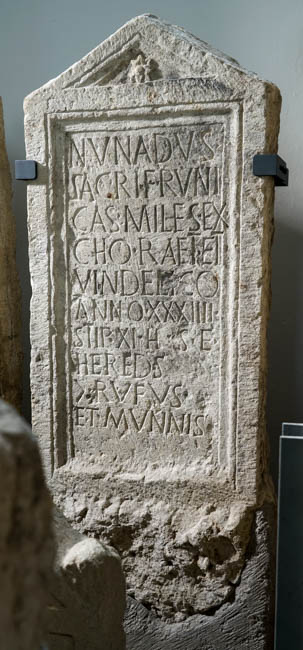 NVNADVS
SACRI·F·RVNI
CAS·MILES·EX
CHO·RAETI·ET
VINDELCO
ANNO·XXXIIII
STIP·XI·H·S·E
HEREDS
RVFVS
ET·MVNNIS